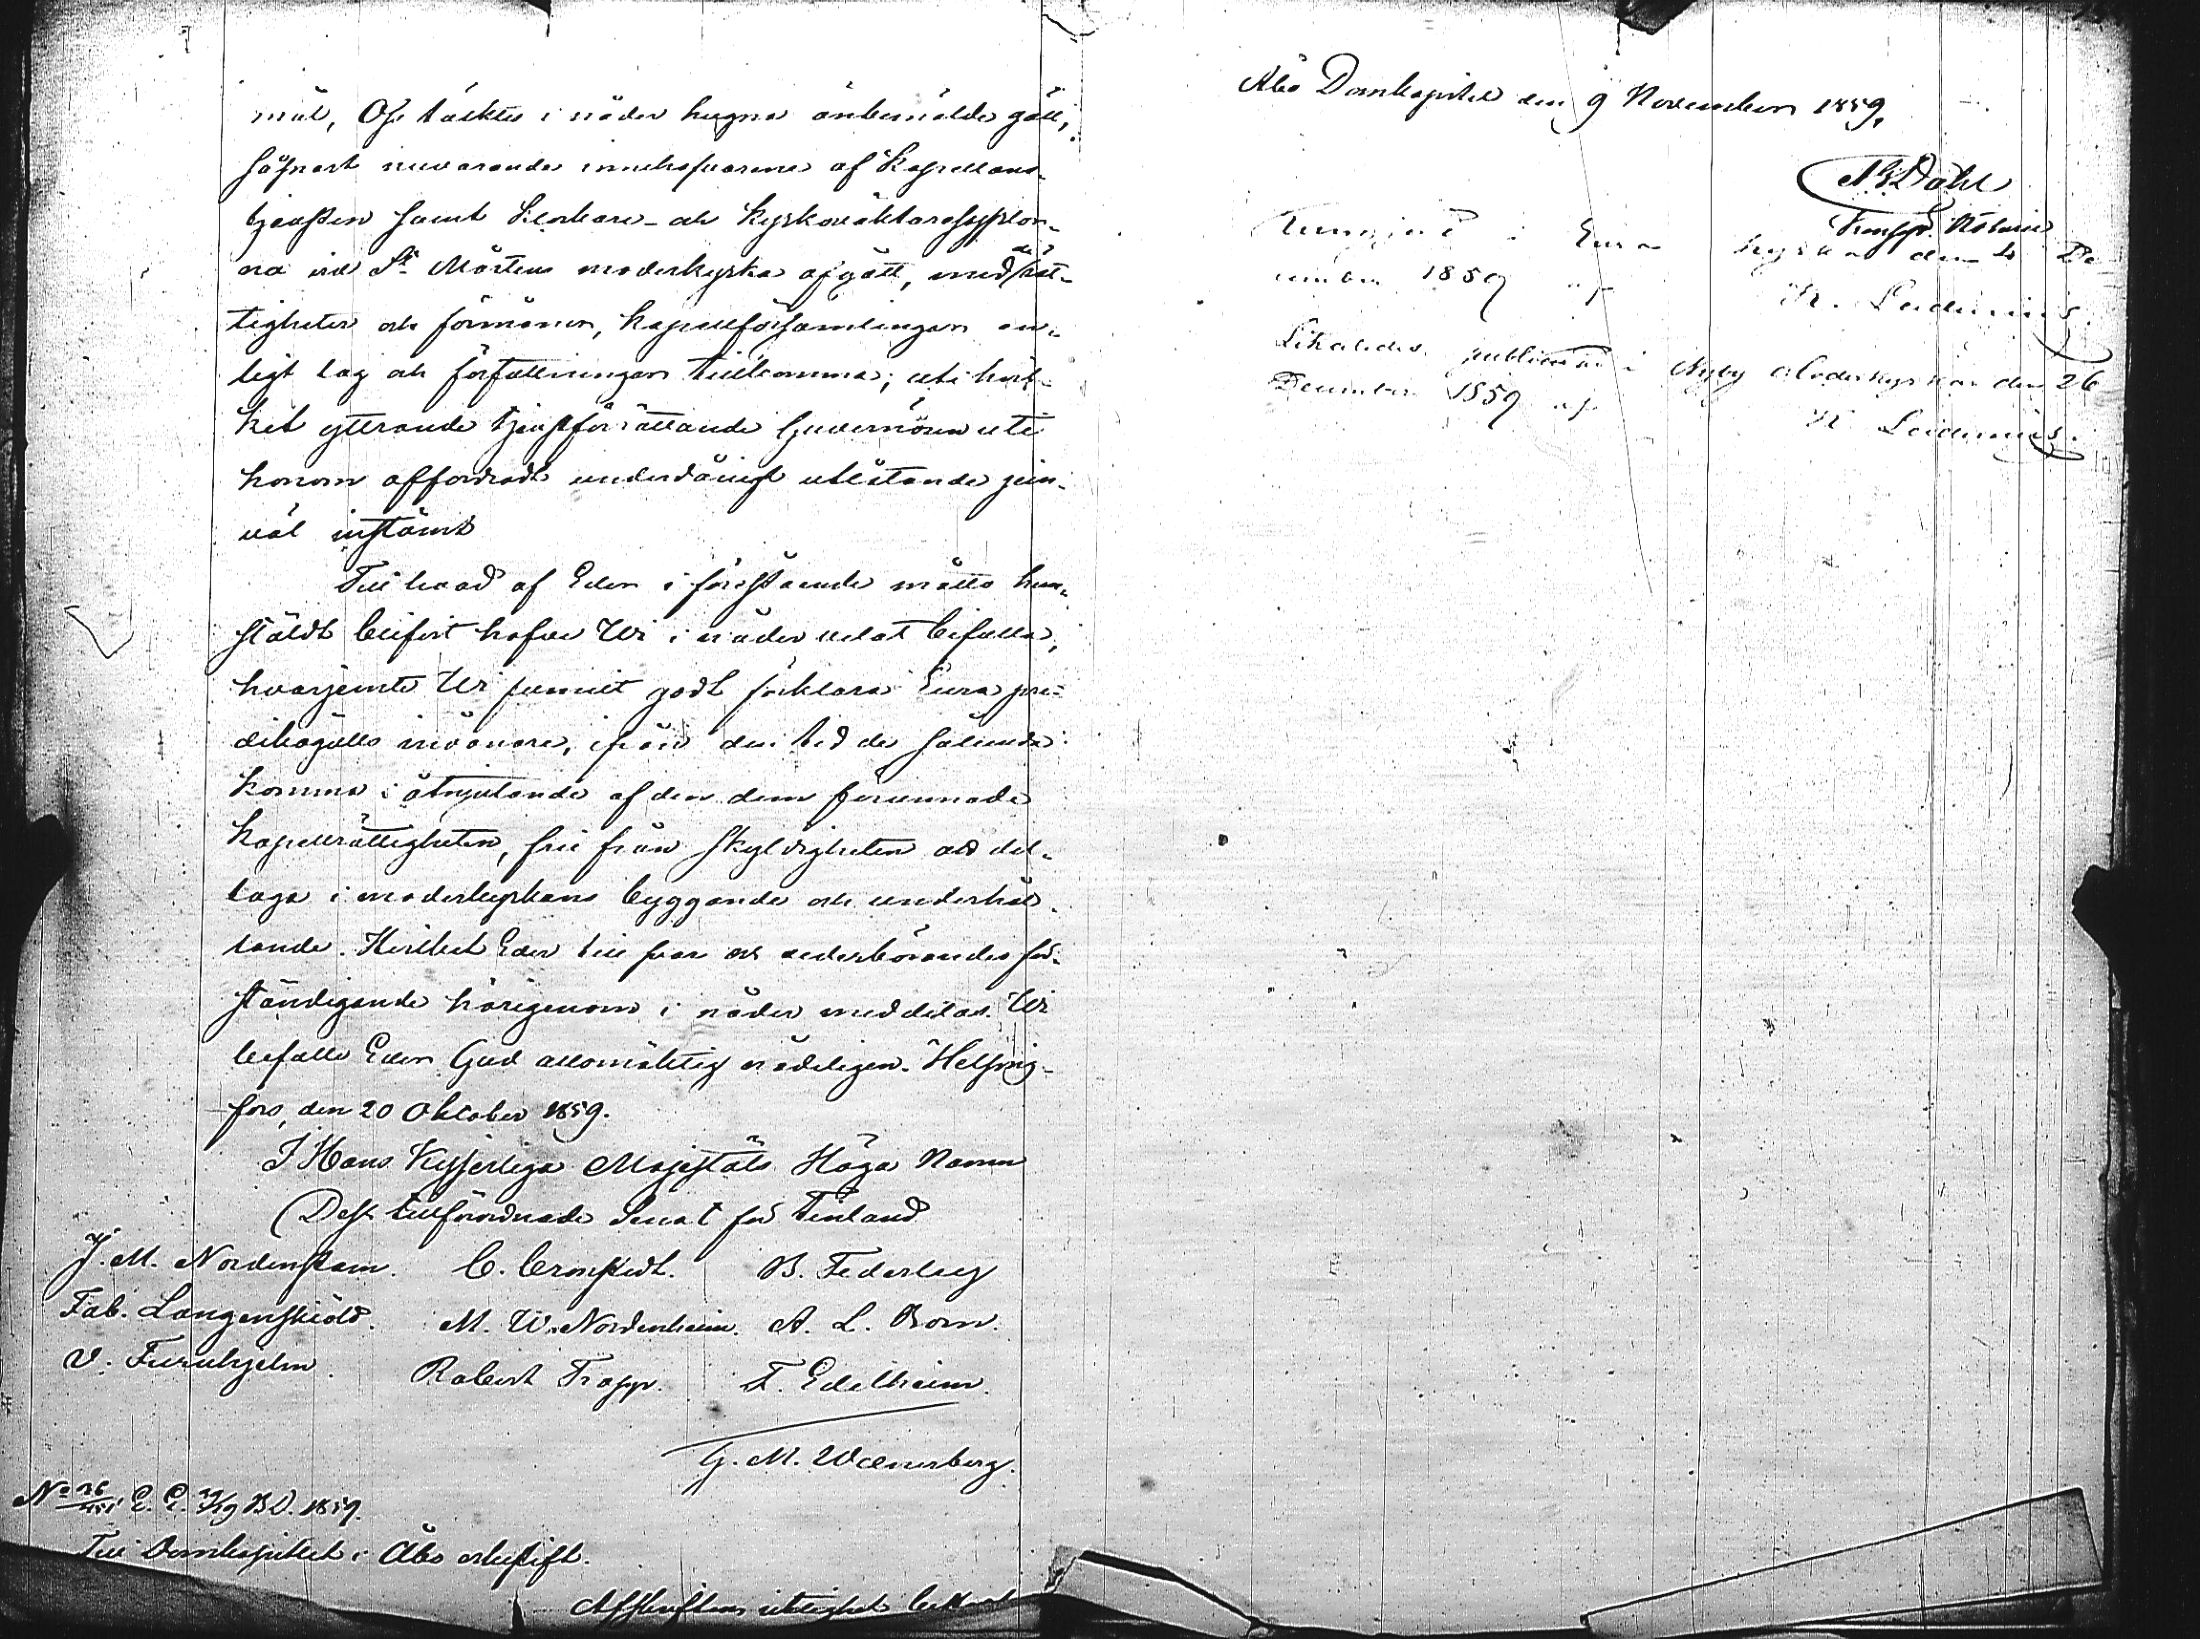 mål, Oss täcktes i nåder hugna ånbemälde gäll,
såsnart nuvarande innehafvarene af Kapellans-
tjensten samt klockare- och kyrkováktaresysslor-
na vid St Mårtens moderkyrka afgått, med de rät-
tigheter och förmåner, kapellförsamlingar en-
ligt lag och författningar tillkomma; uti hvil-
ket yttrande tjenstförrättande Guvernören uti
honom affordradt underdånigt utlåtande jem-
väl instämt
Till hvad af Eder i förestående måtto hem-
stäldt blifvit hafve Wi i nåder velat bifalla,
hvarjemte Wi funnit godt förklara Eura pre-
dikogälls invånare, ifrån den tid de sålunda
komma i åtnjutande af den dem förunnade
kapellrättigheten, frie från skyldigheten att del-
taga i moderkyrkans byggande och underhål-
lande. Hvilket Eder till svar och vederbörandes för-
ständigande härigenom i nåder meddelas. Wi
befalle Eder Gud allsmäktig nådeligen. Helsing-
fors, den 20 Oktober 1859.
I Hans Kejserliga Majestäts Höga Namn
Dess tillförordnade Senat för Finland
J. M. Nordenstam. C. Cronstedt. B. Federley
Fab. Langenskiöld. M. W. Nordenheim. A. L. Born.
V. Furuhjelm. Robert Trapp. F. Edelheim.
G. M. Waenerberg.
No E. E. B.D. 1859.
Till Domkapitlet i Åbo erkestift.
Afskriftens riktighet
Åbo Domkapitel den 9 November 1859,
Dahl
Notarie
i Eura kyrka den 4 De
cember 1859 af K. Leidenius.
Likaledes publicerad i Nyby Moderkyrka den 26
December 1859 af
K Leidenius.